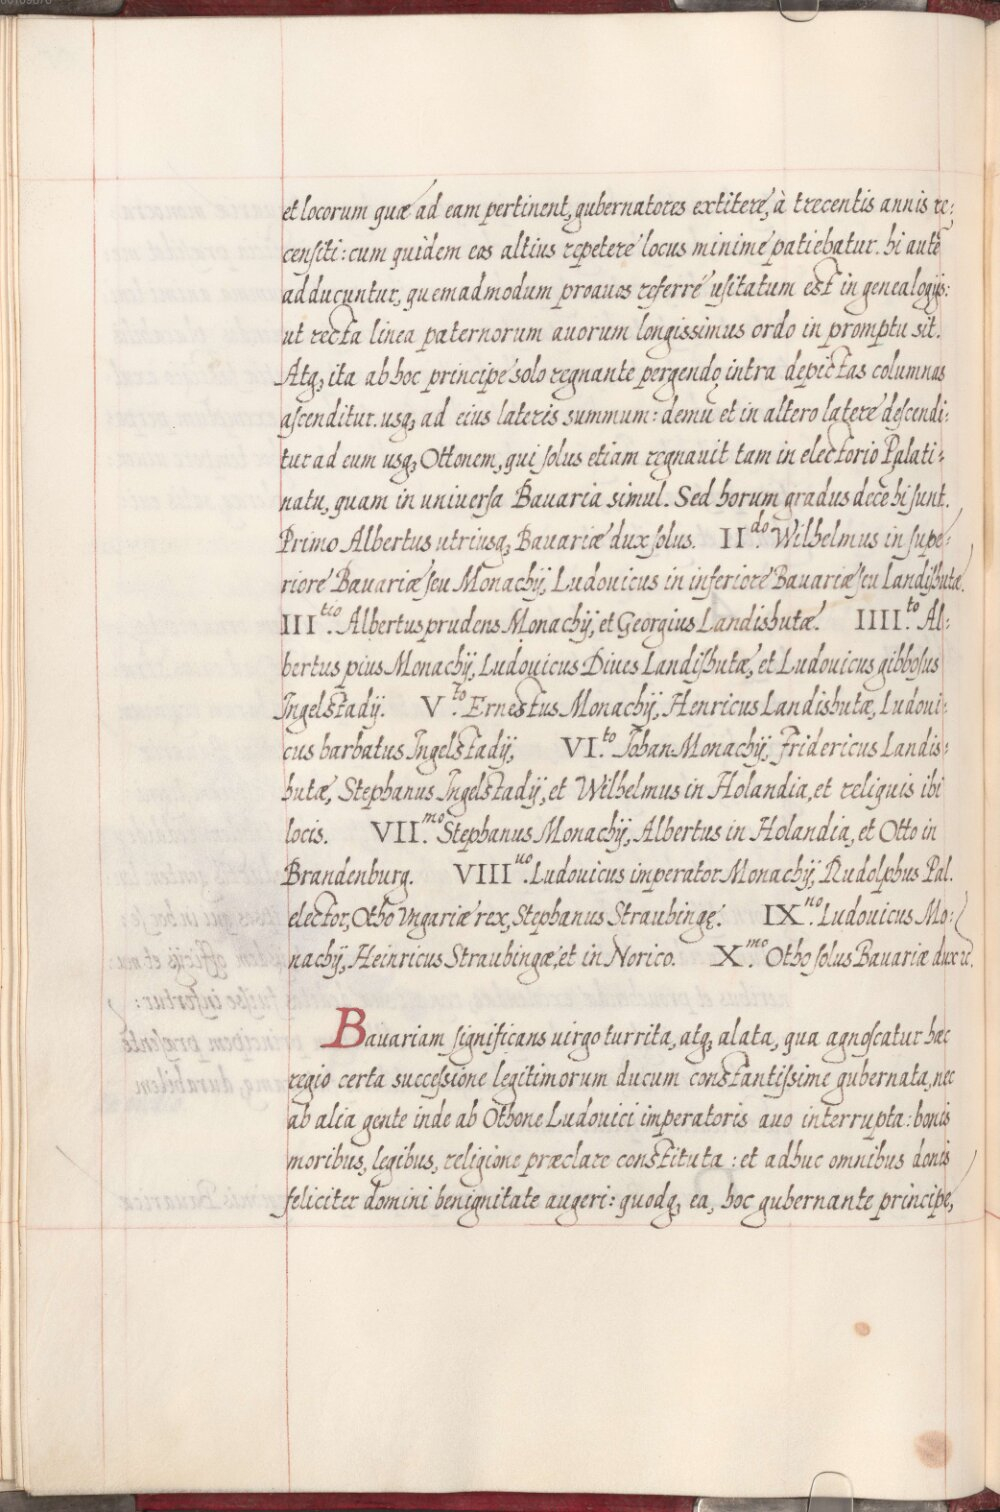 et locorum quæ ad eam pertinent, gubernatores extitere, à trecentis annis re;
censiti: cum quidem eos altius repetere locus minime patiebatur. hi autē
adducuntur, quemadmodum proauos referre usitatum est in genealogijs:
ut recta linea paternorum auorum longissimus ordo in promptu sit.
Atq; ita ab hoc principe solo regnante pergendo intra depictas columnas
ascenditur. usq; ad eius lateris summum: demū et in altero latere descendi:
tur ad eum usq; Ottonem, qui solus etiam regnauit tam in electorio Palati:
natu, quam in uniuersa Bauaria simul. Sed horum gradus decē hi sunt.
Primo Albertus utriusq; Bauariæ dux solus. II.do Wilhelmus in supe:
riore Bauariæ seu Monachij, Ludouicus in inferiore Bauariæ seu Landishutæ.
III.tio Albertus prudens Monachij, et Georgius Landishutæ. IIII.to Al:
bertus pius Monachij, Ludouicus Diues Landishutæ, et Ludouicus gibbosus
Ingelstadij. V.to Ernestus Monachij, Henricus Landishutæ, Ludoui:
cus barbatus Ingelstadij, VI.to Johan. Monachij, Fridericus Landis:
hutæ, Stephanus Ingelstadij, et Wilhelmus in Holandia, et reliquis ibi
locis. VII.mo Stephanus Monachij, Albertus in Holandia, et Otto in
Brandenburg. VIII.uo Ludouicus imperator Monachij, Rudolphus Pal.
elector, Otho Vngariæ rex, Stephanus Straubingę. IX.no Ludouicus Mo:
nachij, Heinricus Straubingæ, et in Norico. X.mo Otho solus Bauariæ dux ꝛc.
Bauariam significans uirgo turrita, atq; alata, qua agnoscatur hæc
regio certa successione legitimorum ducum constantissime gubernata, nec
ab alia gente inde ab Othone Ludouici imperatoris auo interrupta: bonis
moribus, legibus, religione præclare constituta: et adhuc omnibus donis
feliciter domini benignitate augeri: quodq; ea, hoc gubernante principe,